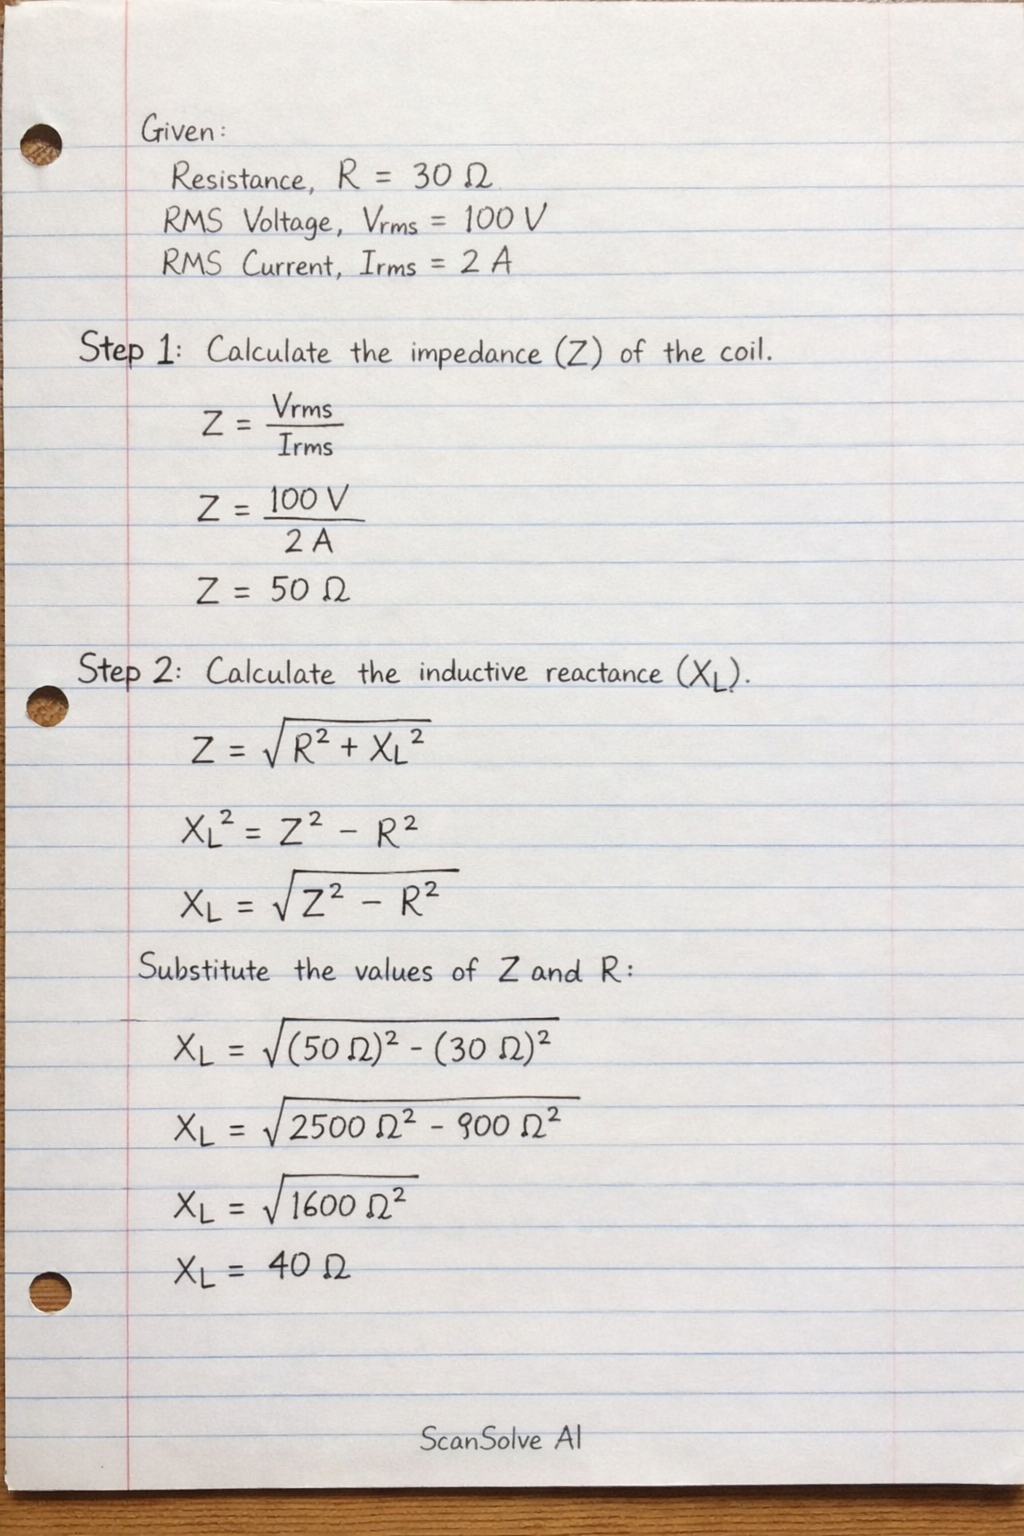 Given:
Resistance, R = 30 Ω
RMS Voltage, Vrms = 100 V
RMS Current, Irms = 2 A
Step 1: Calculate the impedance (Z) of the coil.
Z = Vrms / Irms
Z = 100 V / 2 A
Z = 50 Ω
Step 2: Calculate the inductive reactance (X_L).
Z = √(R² + X_L²)
X_L² = Z² - R²
X_L = √(Z² - R²)
Substitute the values of Z and R:
X_L = √((50 Ω)² - (30 Ω)²)
X_L = √(2500 Ω² - 900 Ω²)
X_L = √(1600 Ω²)
X_L = 40 Ω
ScanSolve AI